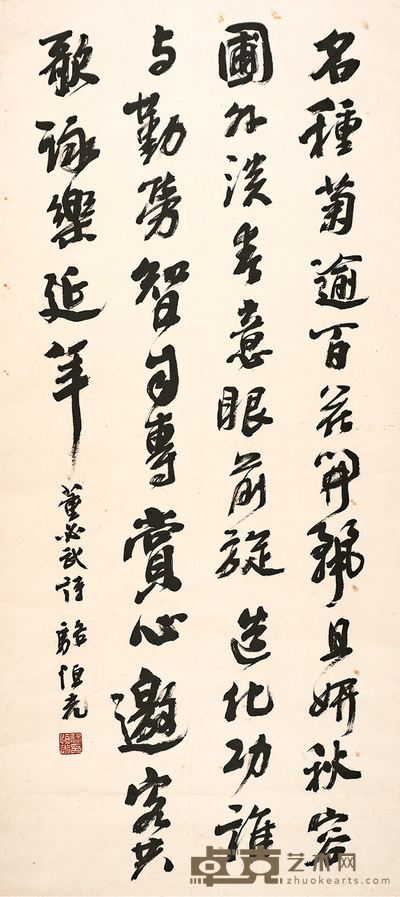 名種菊逾百花開麗且妍秋容
圃外淡春意眼前旋造化功誰
与勤勞智自專賞心邀客共
歌詠樂延年
董必武詩 駱恒光
卓克艺术网
zhuokearts.com